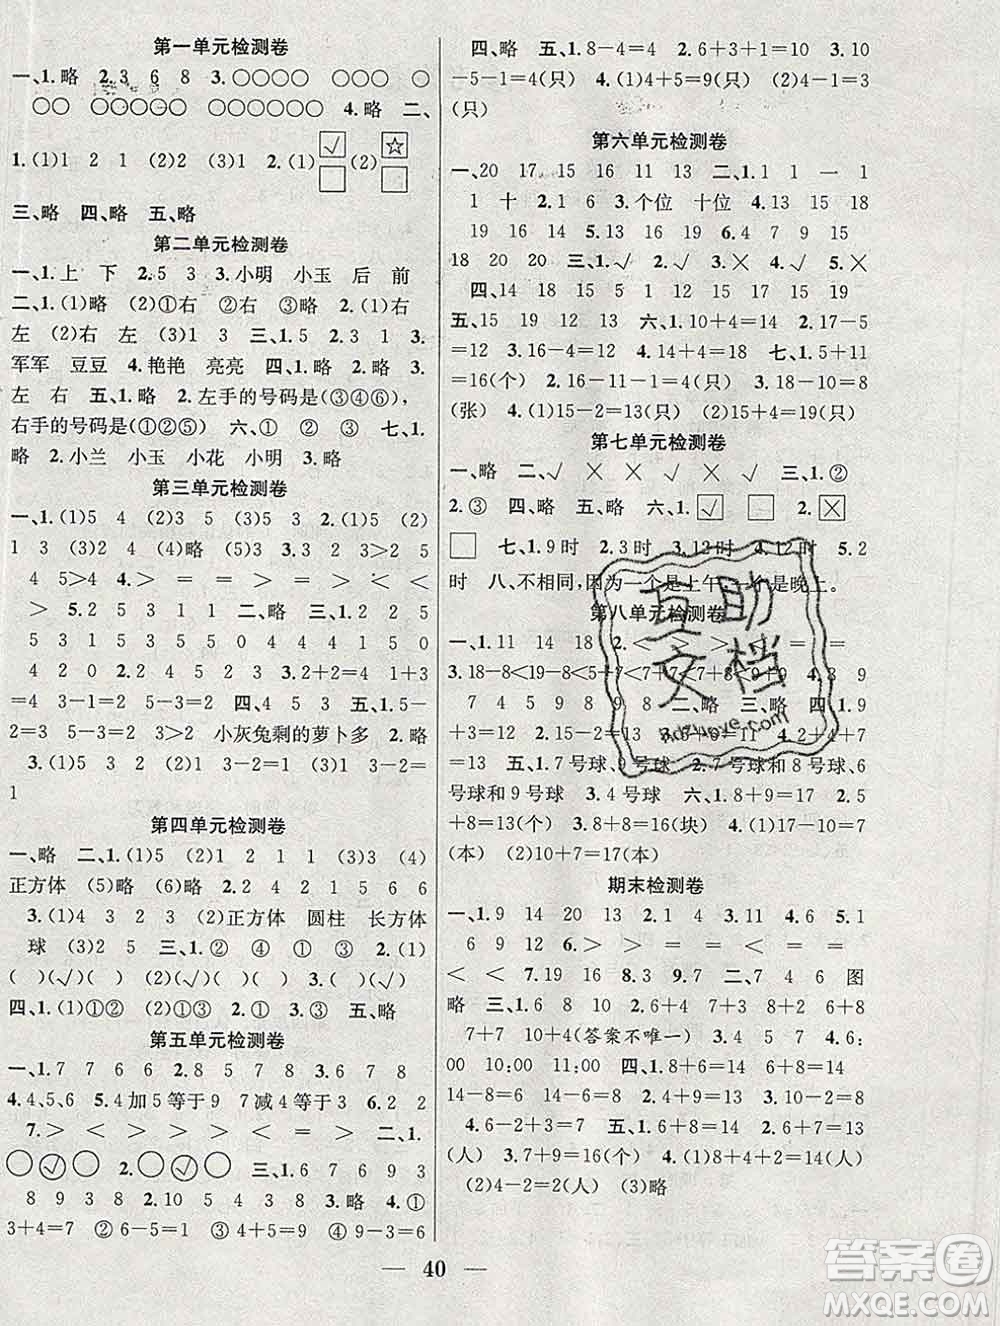 第一单元检测卷
一、1.略 2.3 6 8 3.○○○○ ○○○ ○
○○ ○○○○○ ○○○○○○ 4.略 二、
1.(1)1 2 1 (2)2 (3)1 2.(1)√ (2)☆
三、略 四、略 五、略
第二单元检测卷
一、1.上 下 2.5 3 3.小明 小玉 后 前
二、1.(1)略 (2)①右 ②右 ③略 2.(1)右
左 (2)右 左 (3)1 3 三、1.5 2.1 3 3.
军军 豆豆 4.艳艳 亮亮 四、1.略 2.略 3.
左 右 五、1.略 2.左手的号码是(③④⑥),
右手的号码是(①②⑤) 六、① ② ③ 七、1.
略 2.小兰 小玉 小花 小明 3.略
第三单元检测卷
一、1.(1)5 4 (2)3 5 (3)5 2.(1)5 (2)
1 3 (3)2 (4)略 (5)2 3.3 3>2 5
4 5>4 4.> = > = > < < >
> 5.2 5 3 1 1 二、略 三、1.3 5
1 5 3 1 5 3 2.2+2=4 1+3=
4 3-1=2 四、4 5 五、1.4-2=
2 5-3=2 3>2 小灰兔剩的萝卜多 2.略
3.(1)5 (2)2 3-2=1 (3)1 3-2=
1
第四单元检测卷
一、略 二、1.(1)5 (2)2 1 1 (3)3 (4)
正方体 (5)略 (6)2 2.4 2 1 5 6 6
3.(1)4 3 2 (2)正方体 圆柱 长方体
球 (3)2 5 三、1.② ④ ① ③ 2.(1)
( )(√)( ) (2)(√)( )( ) 3.( )(√)
四、1.(1)①② (2)①③ 2.① 3.③ 五、略
第五单元检测卷
一、1.7 7 6 6 2.8 5 7 8 3.6 7 8
4.4、5、6 5.4 加 5 等于 9 7 减 4 等于 3 6.2 2
7.> < > > > < = > 二、1.
○○√○ 2.○√○ 三、1.6 7 6 9 3
8 9 3 8 2.10 5 4 3 8 3.略 4.①
3+4=7 ②6-5=1 ③4+5=9 ④9-3=6
四、略 五、1.8-4=4 2.6+3+1=10 3.10
-5-1=4(只) 4.(1)4+5=9(只) (2)4-1=3
(只)
第六单元检测卷
一、20 17 15 16 11 13 二、1.1 1 一 1
1 十 2.1 6 3.个位 十位 4.13 15 18
19 16 14 5.13 18 19 6.4 7 9 15
18 20 20 三、1.√ 2.√ 3.× 4.√ 5.×
四、14 18 15 10 12 17 15 19
五、15 19 12 六、1.10+4=14 2.17-5
=12 3.4+10=14 4.18-4=14 七、1.5+11
=16(个) 2.16-4-8=4(只) 3.16-8=8
(张) 4.(1)15-2=13(只) (2)15+4=19(只)
第七单元检测卷
一、略 二、√ × × √ × √ 三、1.②
2.③ 四、略 五、略 六、1.√ 2.×
七、1.9时 2.3时 3.12时 4.12时 5.2
时 八、不相同,因为一个是上午,一个是晚上。
第八单元检测卷
一、1.11 14 18 2. = =
3.18-8<19-8 4.3 8 9
7 4 5 9 8 二、略 三、略 四、1.9
号球 2.7号球和8号球、6
号球和9号球 3.4号球 六、1.8+9=17 2.5
+8=13(个) 3.8+8=16(块) 4.(1)17-10=7
(本) (2)10+7=17(本)
期末检测卷
一、1.9 14 20 13 2.1 4 3.11 4.6 5.1
6 9 12 6.> > = = < = = =
< < 7.19 16 8.3 9.7 二、7 4 6 图
略 三、1.6 8 10 2.6+4 7+3 8+3 8+6
7+7 10+4(答案不唯一) 3.4 5 7 4.6:
00 10:00 11:00 四、1.8+6=14 14-6=8
14-8=6 2.6+7=13 3.9+8=17 17-9=8
4.6-2+3=7 五、1.9+5=14 2.6+7=13
(人) 3.7+9=16(人) 4.(1)8+6=14(人)
(2)4-2=2(人) (3)略
40
互助
文档
答案圈
MXQE.COM